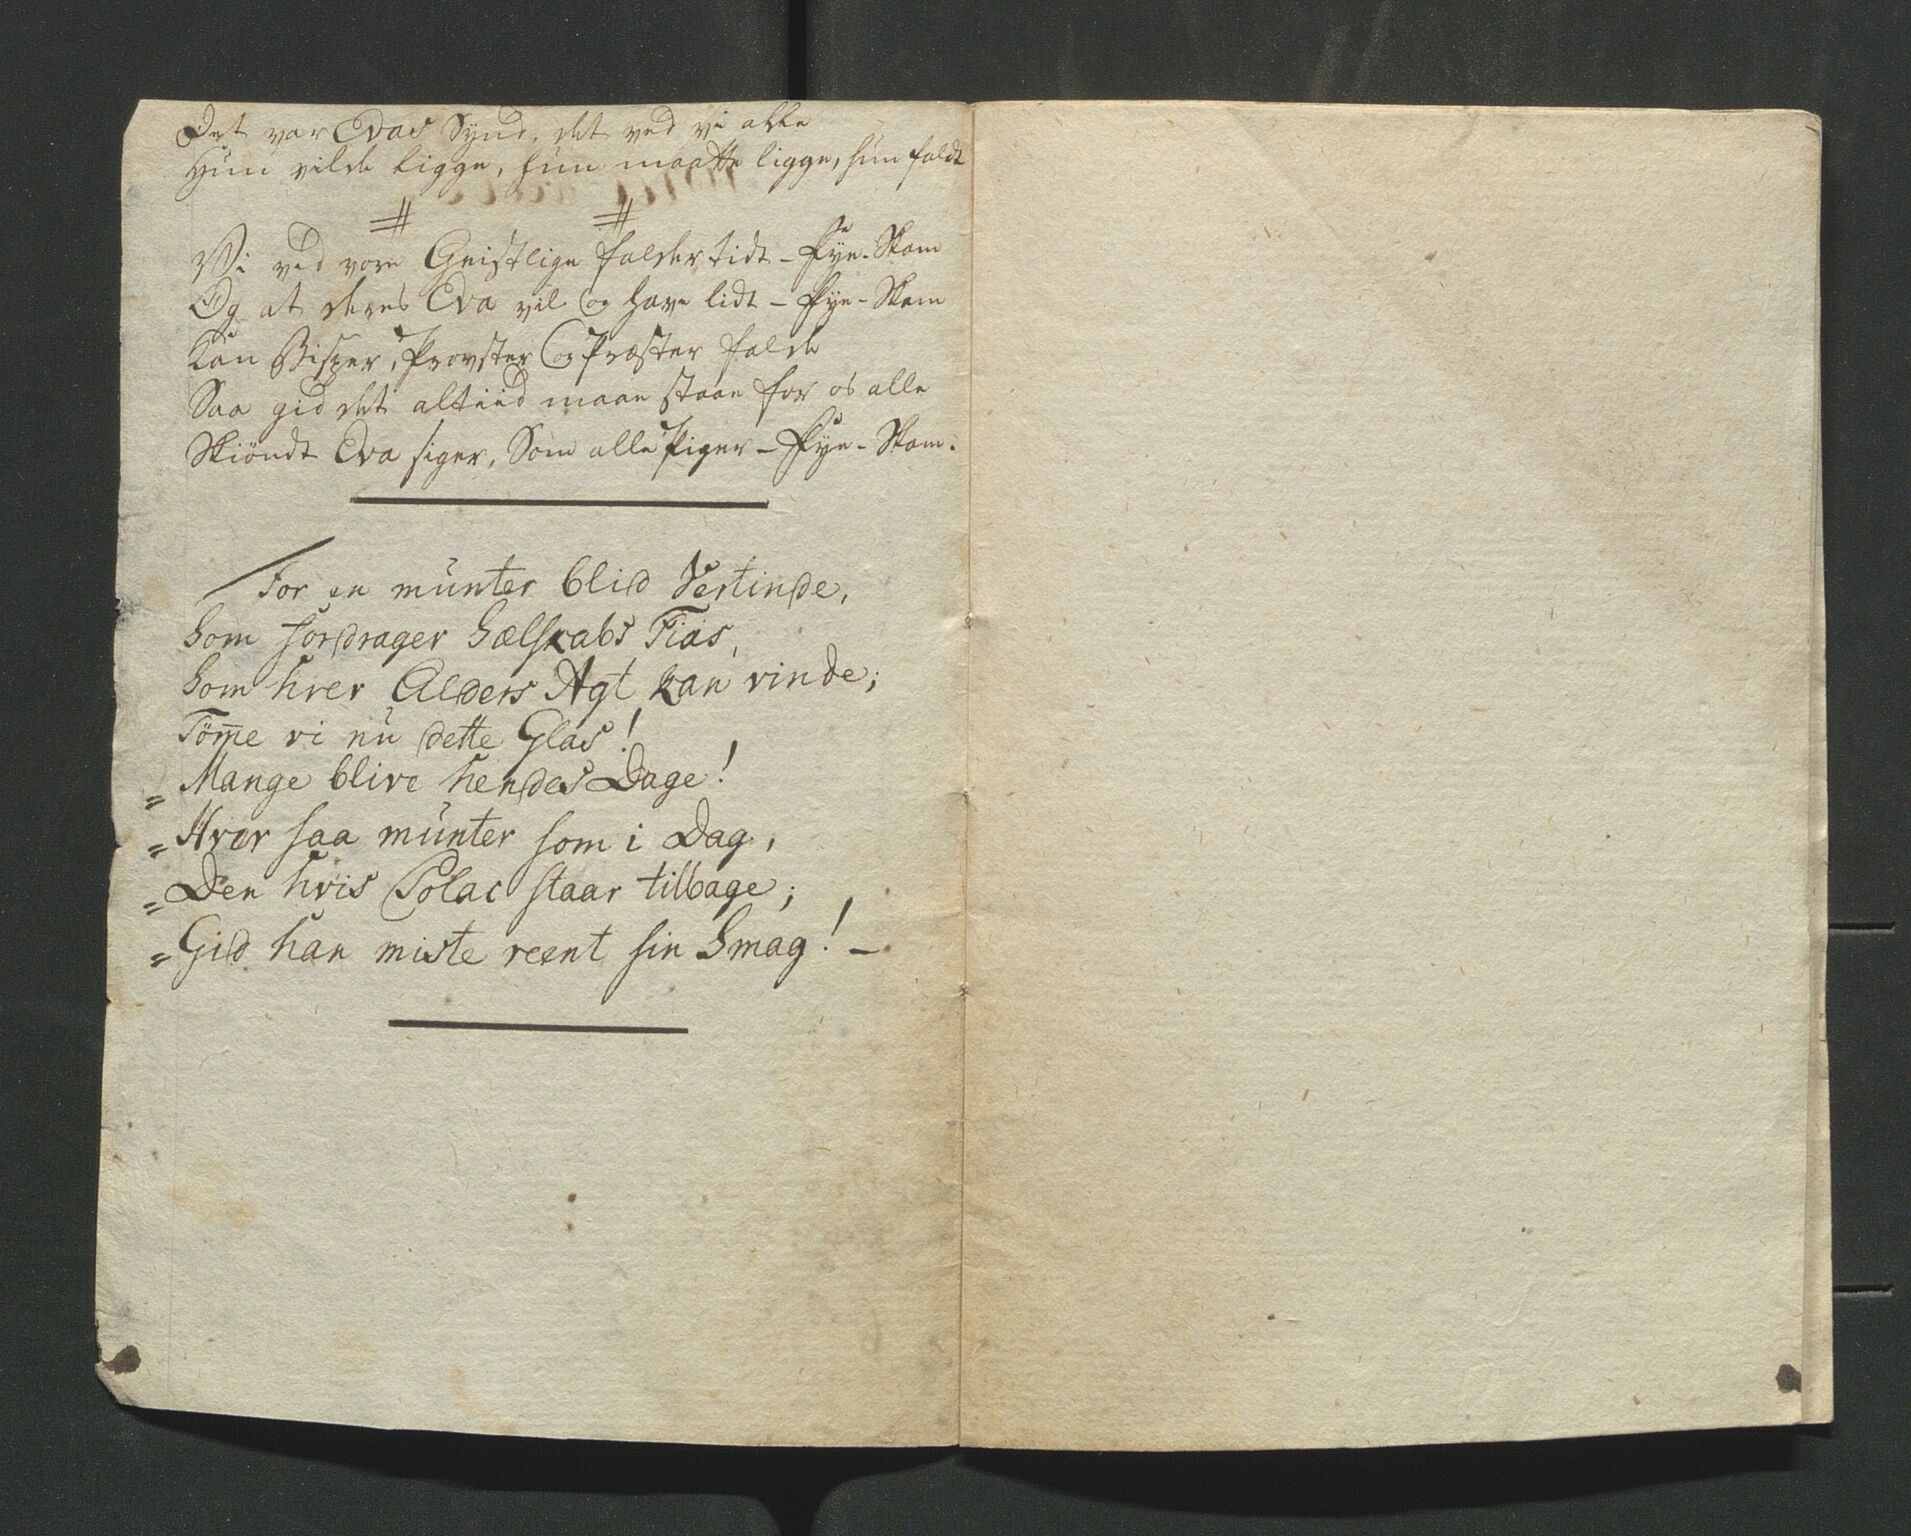 Det var Evas Synd, det ved vi alle
Hun vilde ligge, hun maatte ligge, hun faldt
Vi ved vore Geistlige falder tidt - Fye-Skam
Og at deres Eva vil og have lidt - Fye-Skam
Kan Bisper, Provster og Præster falde
Saa gid det altiid maae staae for os alle
Skiöndt Eva siger, Som alle Piger - Fye-Skam.
For en munter blid Vertinde,
Som fordrager Sælskabs Fias,
Som hver Alders Agt kan vinde;
Tömme vi nu dette Glas!
= Mange blive hendes Dage!
= Hver saa munter som i Dag,
= Den hvis Polac staar tilbage;
= Gid han miste reent sin Smag! -